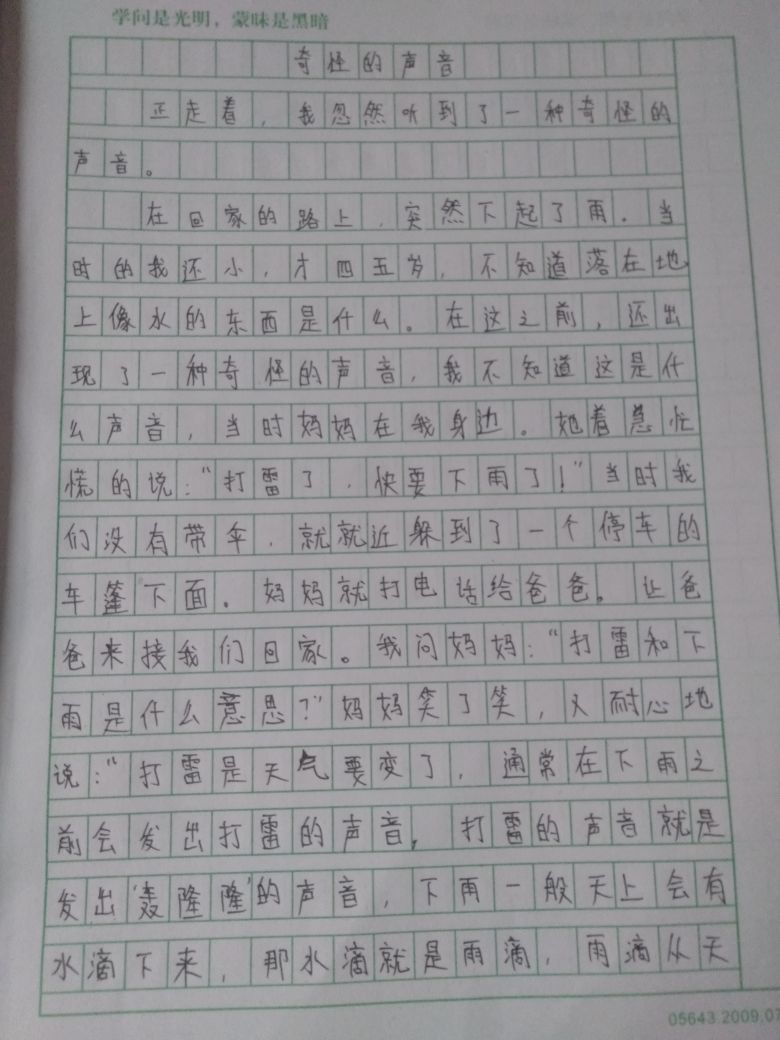 学问是光明，蒙昧是黑暗
奇怪的声音
正走着，我忽然听到了一种奇怪的
声音。
在回家的路上，突然下起了雨．当
时的我还小，才四五岁，不知道落在地
上像水的东西是什么。在这之前，还出
现了一种奇怪的声音，我不知道这是什
么声音，当时妈妈在我身边。她着急忙
慌的说：“打雷了，快要下雨了！”当时我
们没有带伞．就就近躲到了一个停车的
车篷下面。妈妈就打电话给爸爸。让爸
爸来接我们回家。我问妈妈：“打雷和下
雨是什么意思？”妈妈笑了笑，又耐心地
说：“打雷是天气要变了，通常在下雨之
前会发出打雷的声音，打雷的声音就是
发出‘轰隆隆’的声音，下雨一般天上会有
水滴下来，那水滴就是雨滴，雨滴从天
05643.2009.07